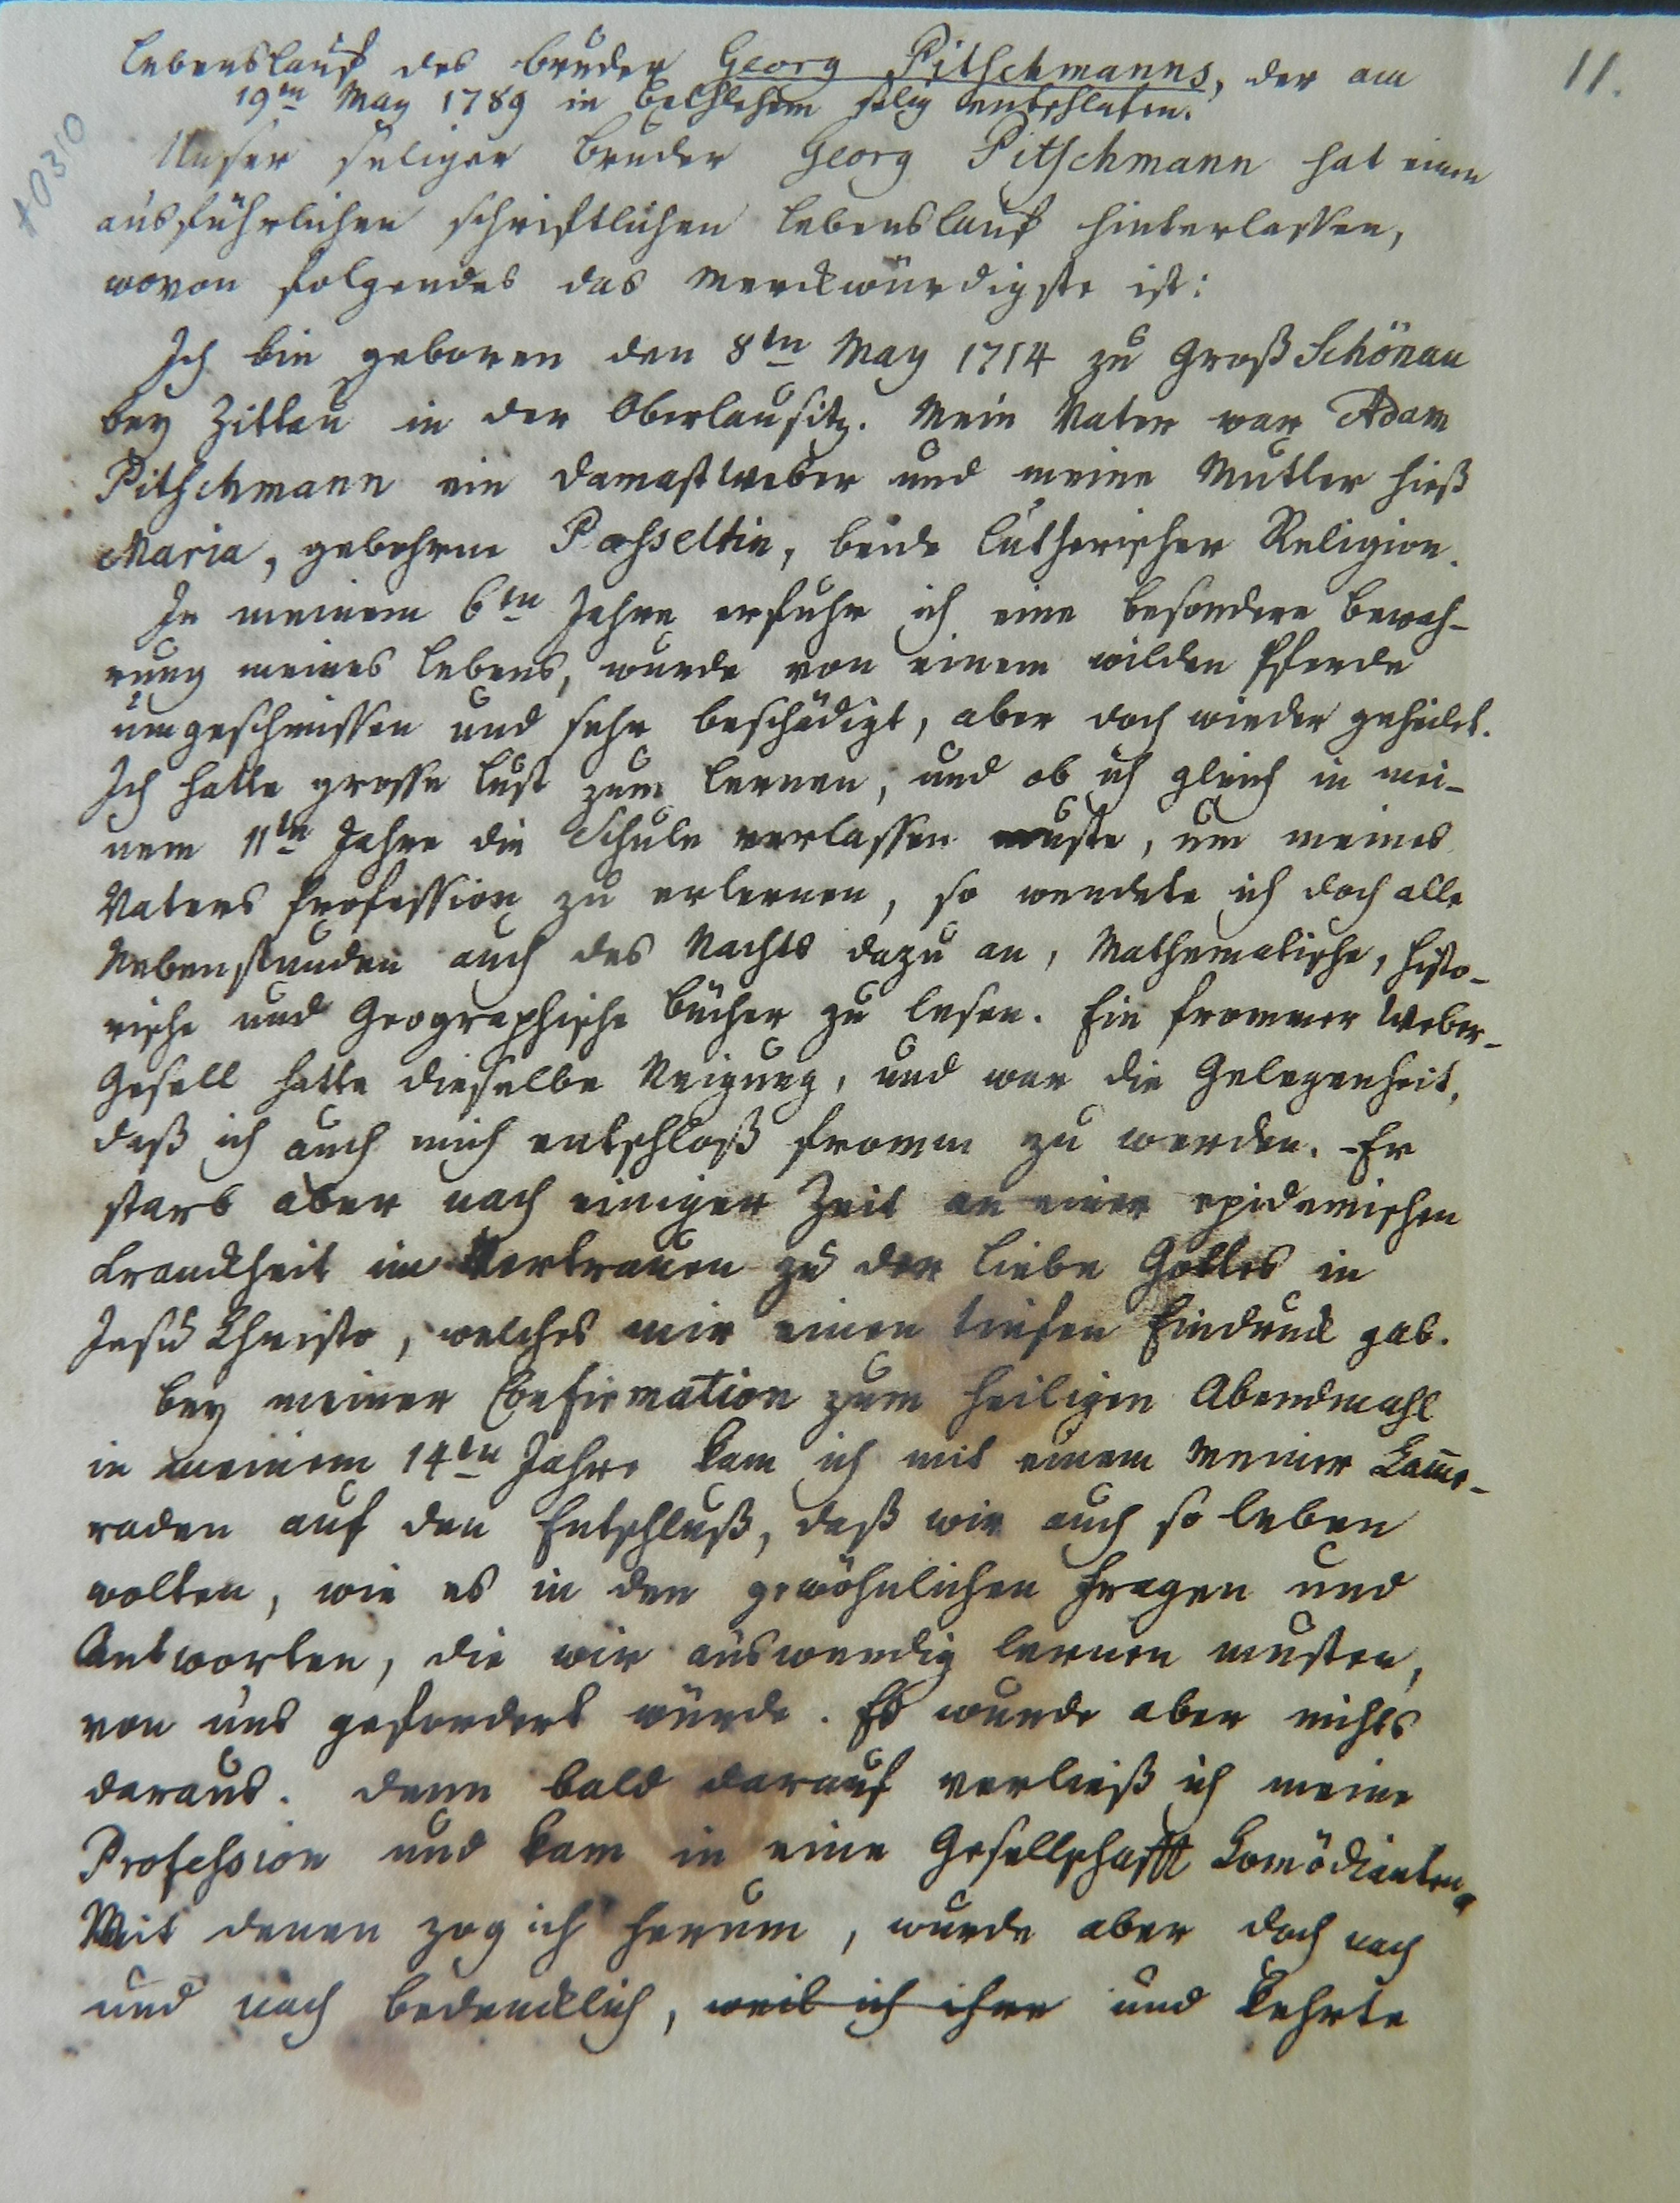 11.
Lebenslauf des Bruder Georg Pitschmanns, der am
19ten May 1789 in Bethlehem selig entschlafen.
Unser seliger Bruder Georg Pitschmann hat einen
ausführlichen schriftlichen Lebenslauf hinterlassen,
wovon folgendes das merckwürdigste ist:
Ich bin geboren den 8ten May 1714 zu Groß Schönau
bey Zittau in der Oberlausitz. Mein Vater war Adam
Pitschmann ein Damastweber und meine Mutter hieß
Maria, gebohrne Posseltin, beide Lutherischer Religion.
In meinem 6ten Jahre erfuhr ich eine besondere Bewah-
rung meines Lebens, wurde von einem wilden Pferde
umgeschmissen und sehr beschädigt, aber doch wieder geheilet.
Ich hatte grosse Lust zum lernen, und ob ich gleich in mei-
nem 11ten Jahre die Schule verlassen muste, um meines
Vaters Profession zu erlernen, so wendete ich doch alle
Nebenstunden auch des Nachts dazu an, Mathematische, histo-
rische und Geographische Bücher zu lesen. Ein frommer Weber-
Gesell hatte dieselbe Neigung, und war die Gelegenheit,
daß ich auch mich entschloß fromm zu werden. Er
starb aber nach einiger Zeit an einer epidemischen
Kranckheit im Vertrauen zu der Liebe Gottes in
Jesu Christo, welches mir einen tiefen Eindruck gab.
Bey meiner Confirmation zum heiligen Abendmahl
in meinem 14ten Jahre kam ich mit einem meiner Kame-
raden auf den Entschluß, daß wir auch so leben
wolten, wie es in den gewöhnlichen Fragen und
Antworten, die wir auswendig lernen musten,
von uns gefordert würde. Es wurde aber nichts
daraus. Denn bald darauf verließ ich meine
Profession und kam in eine Gesellschafft Komödianten.
Mit denen zog ich herum, wurde aber doch nach
und nach bedencklich, weil ich ihre und kehrte